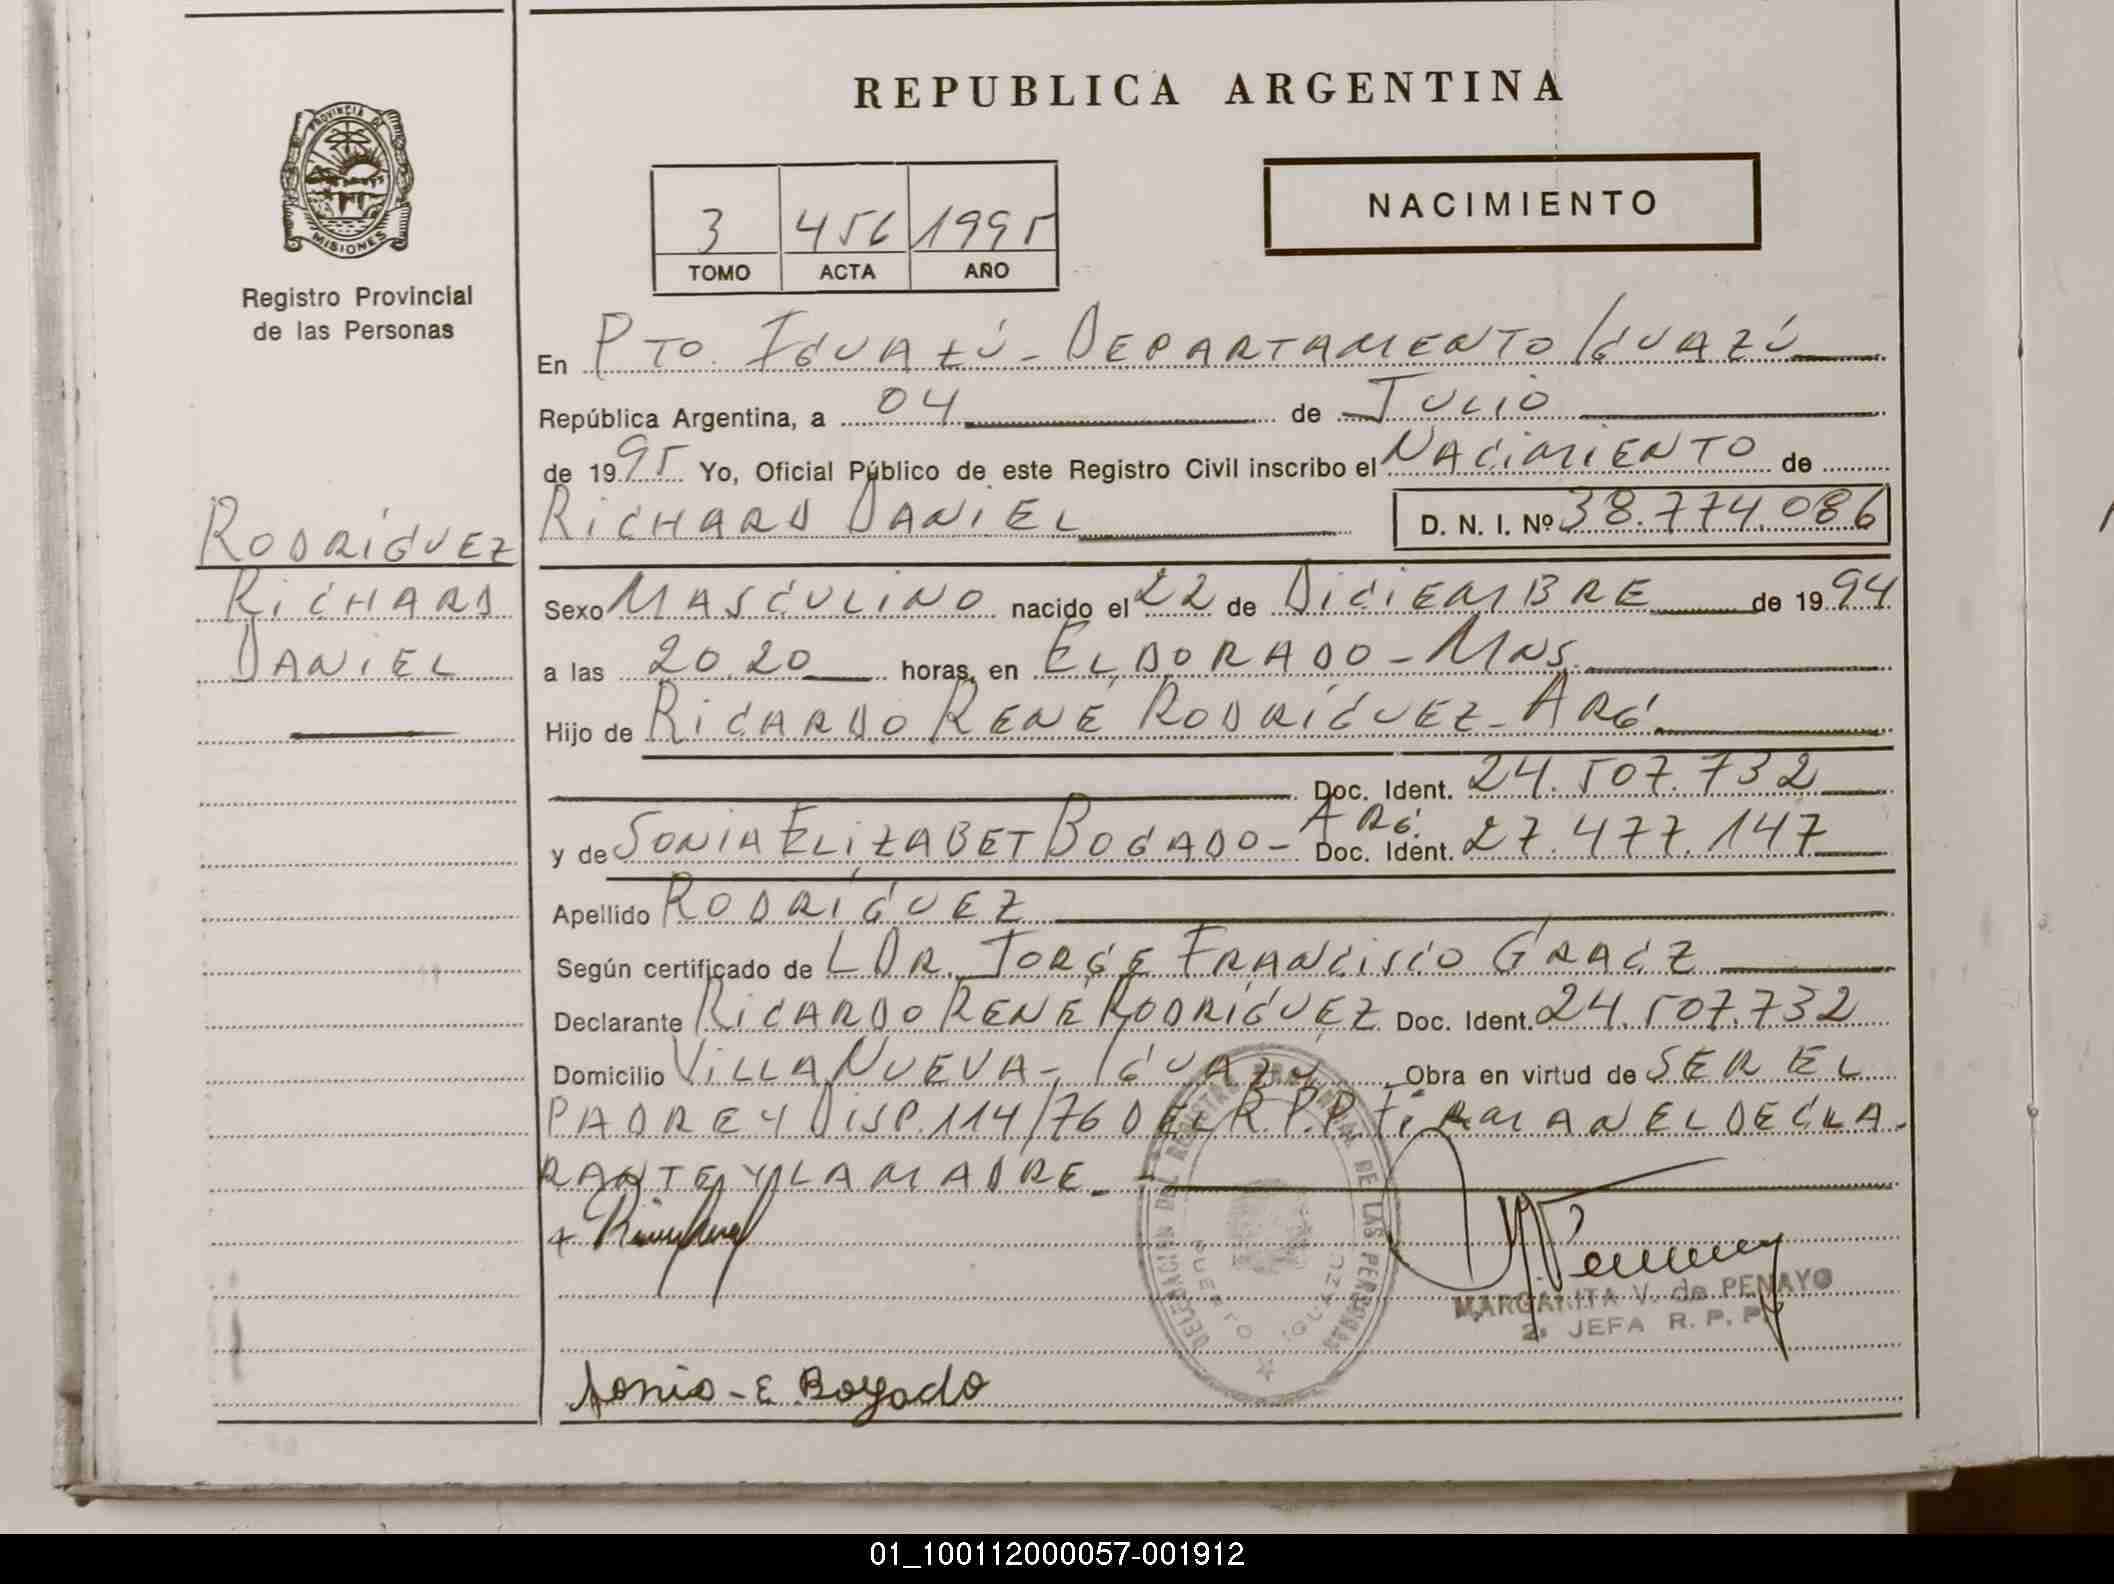 REPUBLICA ARGENTINA
PROVINCIA DE
MISIONES
Registro Provincial
de las Personas
3 456 1995
TOMO ACTA AÑO
NACIMIENTO
En PTO. IGUAZÚ - DEPARTAMENTO IGUAZÚ
República Argentina, a 04 de JULIO
de 1995 Yo, Oficial Público de este Registro Civil inscribo el NACIMIENTO de
RICHARD DANIEL D. N. I. Nº 38.774.086
RODRÍGUEZ
RICHARD
DANIEL
Sexo MASCULINO nacido el 22 de DICIEMBRE de 1994
a las 20.20 horas, en ELDORADO - MNS.
Hijo de RICARDO RENÉ RODRÍGUEZ - ARG.
Doc. Ident. 24.507.732
y de SONIA ELIZABET BOGADO - ARG. Doc. Ident. 27.477.147
Apellido RODRÍGUEZ
Según certificado de L DR. JORGE FRANCISCO GRACZ
Declarante RICARDO RENÉ RODRÍGUEZ Doc. Ident. 24.507.732
Domicilio VILLA NUEVA - IGUAZÚ Obra en virtud de SER EL
PADRE Y DISP. 114/76 DEL R.P.P. FIRMAN EL DECLA-
RANTE Y LA MADRE. -
DELEGACION DEL REGISTRO PROVINCIAL DE LAS PERSONAS
PUERTO IGUAZU
MARGARITA V. de PENAYO
2ª JEFA R. P. P.
Sonia - E Bogado
01_100112000057-001912